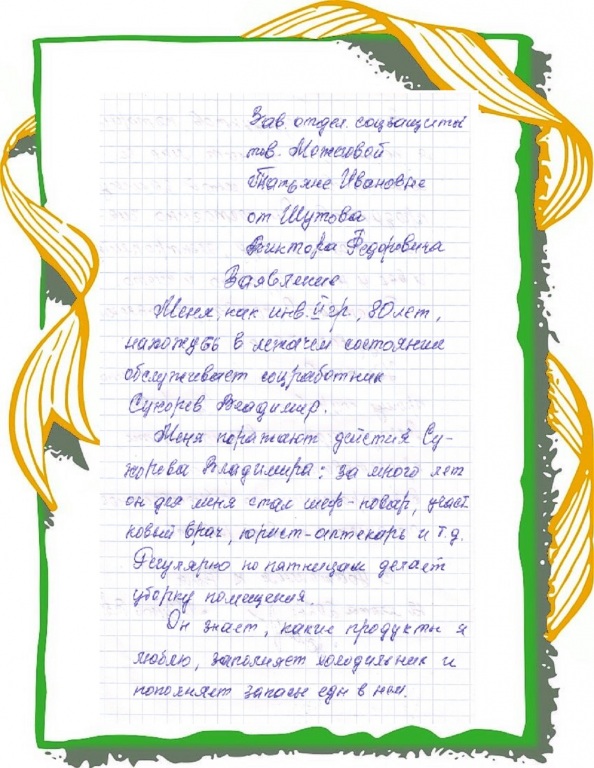 Зав. отдел. соцзащиты
тов.
Татьяне Ивановне
от Шутова
Виктора Федоровича
Заявление
Меня, как инв. II гр, 80 лет,
нахожусь в лежачем состоянии
обслуживает соцработник
Сухорев Владимир.
Меня поражают действия Су-
хорева Владимира: за много лет
он для меня стал шеф-повар, участ
ковый врач, юрист-аптекарь и т.д.
Регулярно по пятницам делает
уборку помещения.
Он знает, какие продукты я
люблю, заполняет холодильник и
пополняет запасы еды в нем.